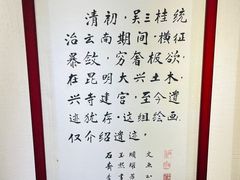 清初，吴三桂统
治云南期间，横征
暴敛，穷奢极欲，
在昆明大兴土木，
兴寺建宫，至今遗
迹犹存，这组绘画，
仅介绍遗迹。